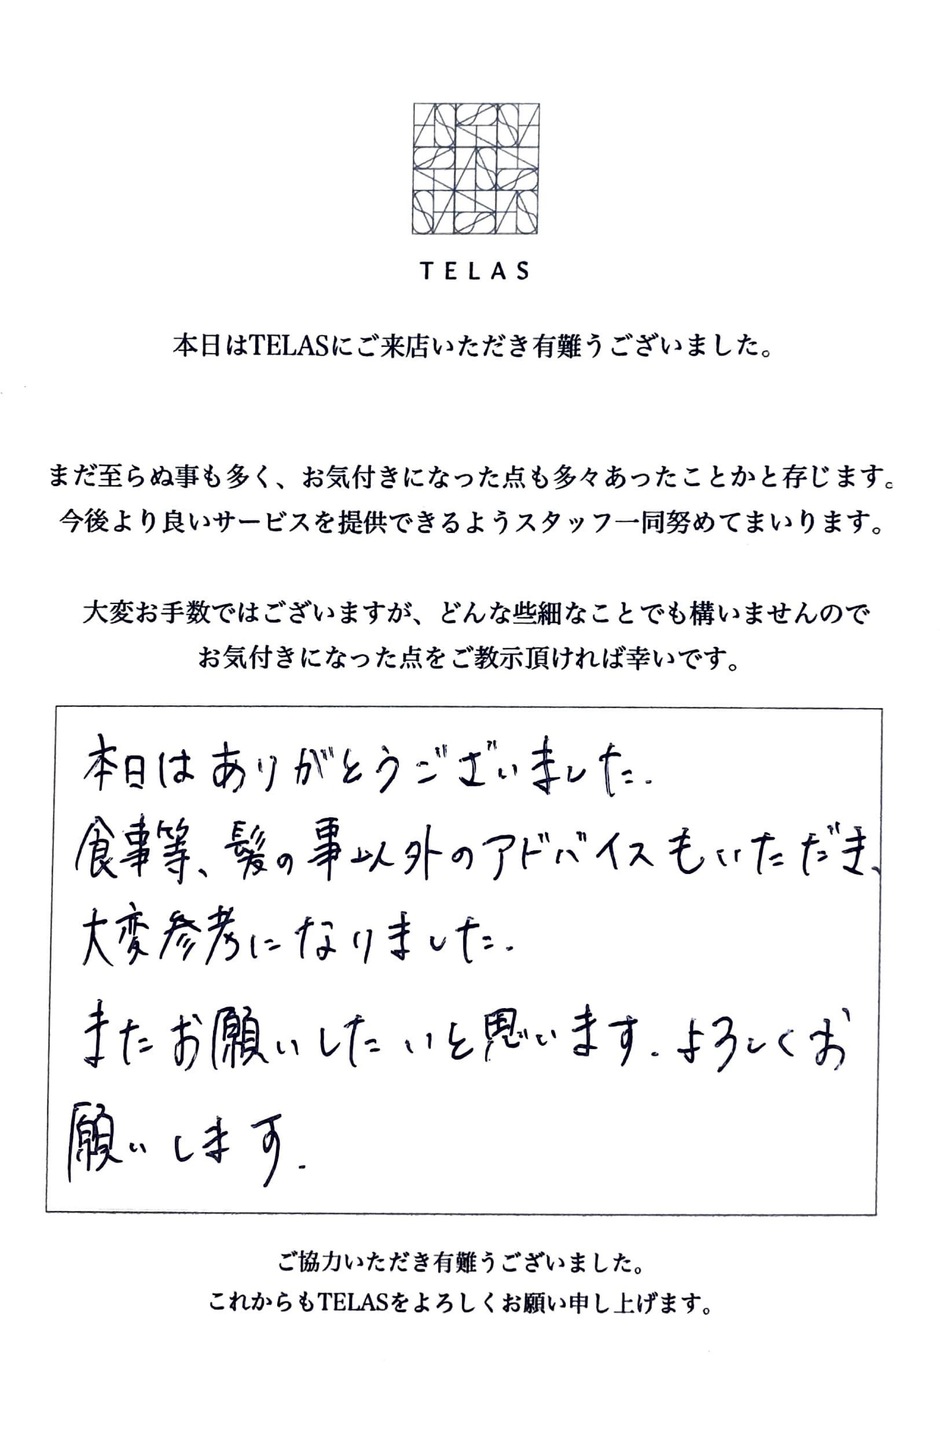 TELAS
本日はTELASにご来店いただき有難うございました。
まだ至らぬ事も多く、お気付きになった点も多々あったことかと存じます。
今後より良いサービスを提供できるようスタッフ一同努めてまいります。
大変お手数ではございますが、どんな些細なことでも構いませんので
お気付きになった点をご教示頂ければ幸いです。
本日はありがとうございました.
食事等、髪の事以外のアドバイスもいただき、
大変参考になりました.
またお願いしたいと思います.よろしくお
願いします.
ご協力いただき有難うございました。
これからもTELASをよろしくお願い申し上げます。